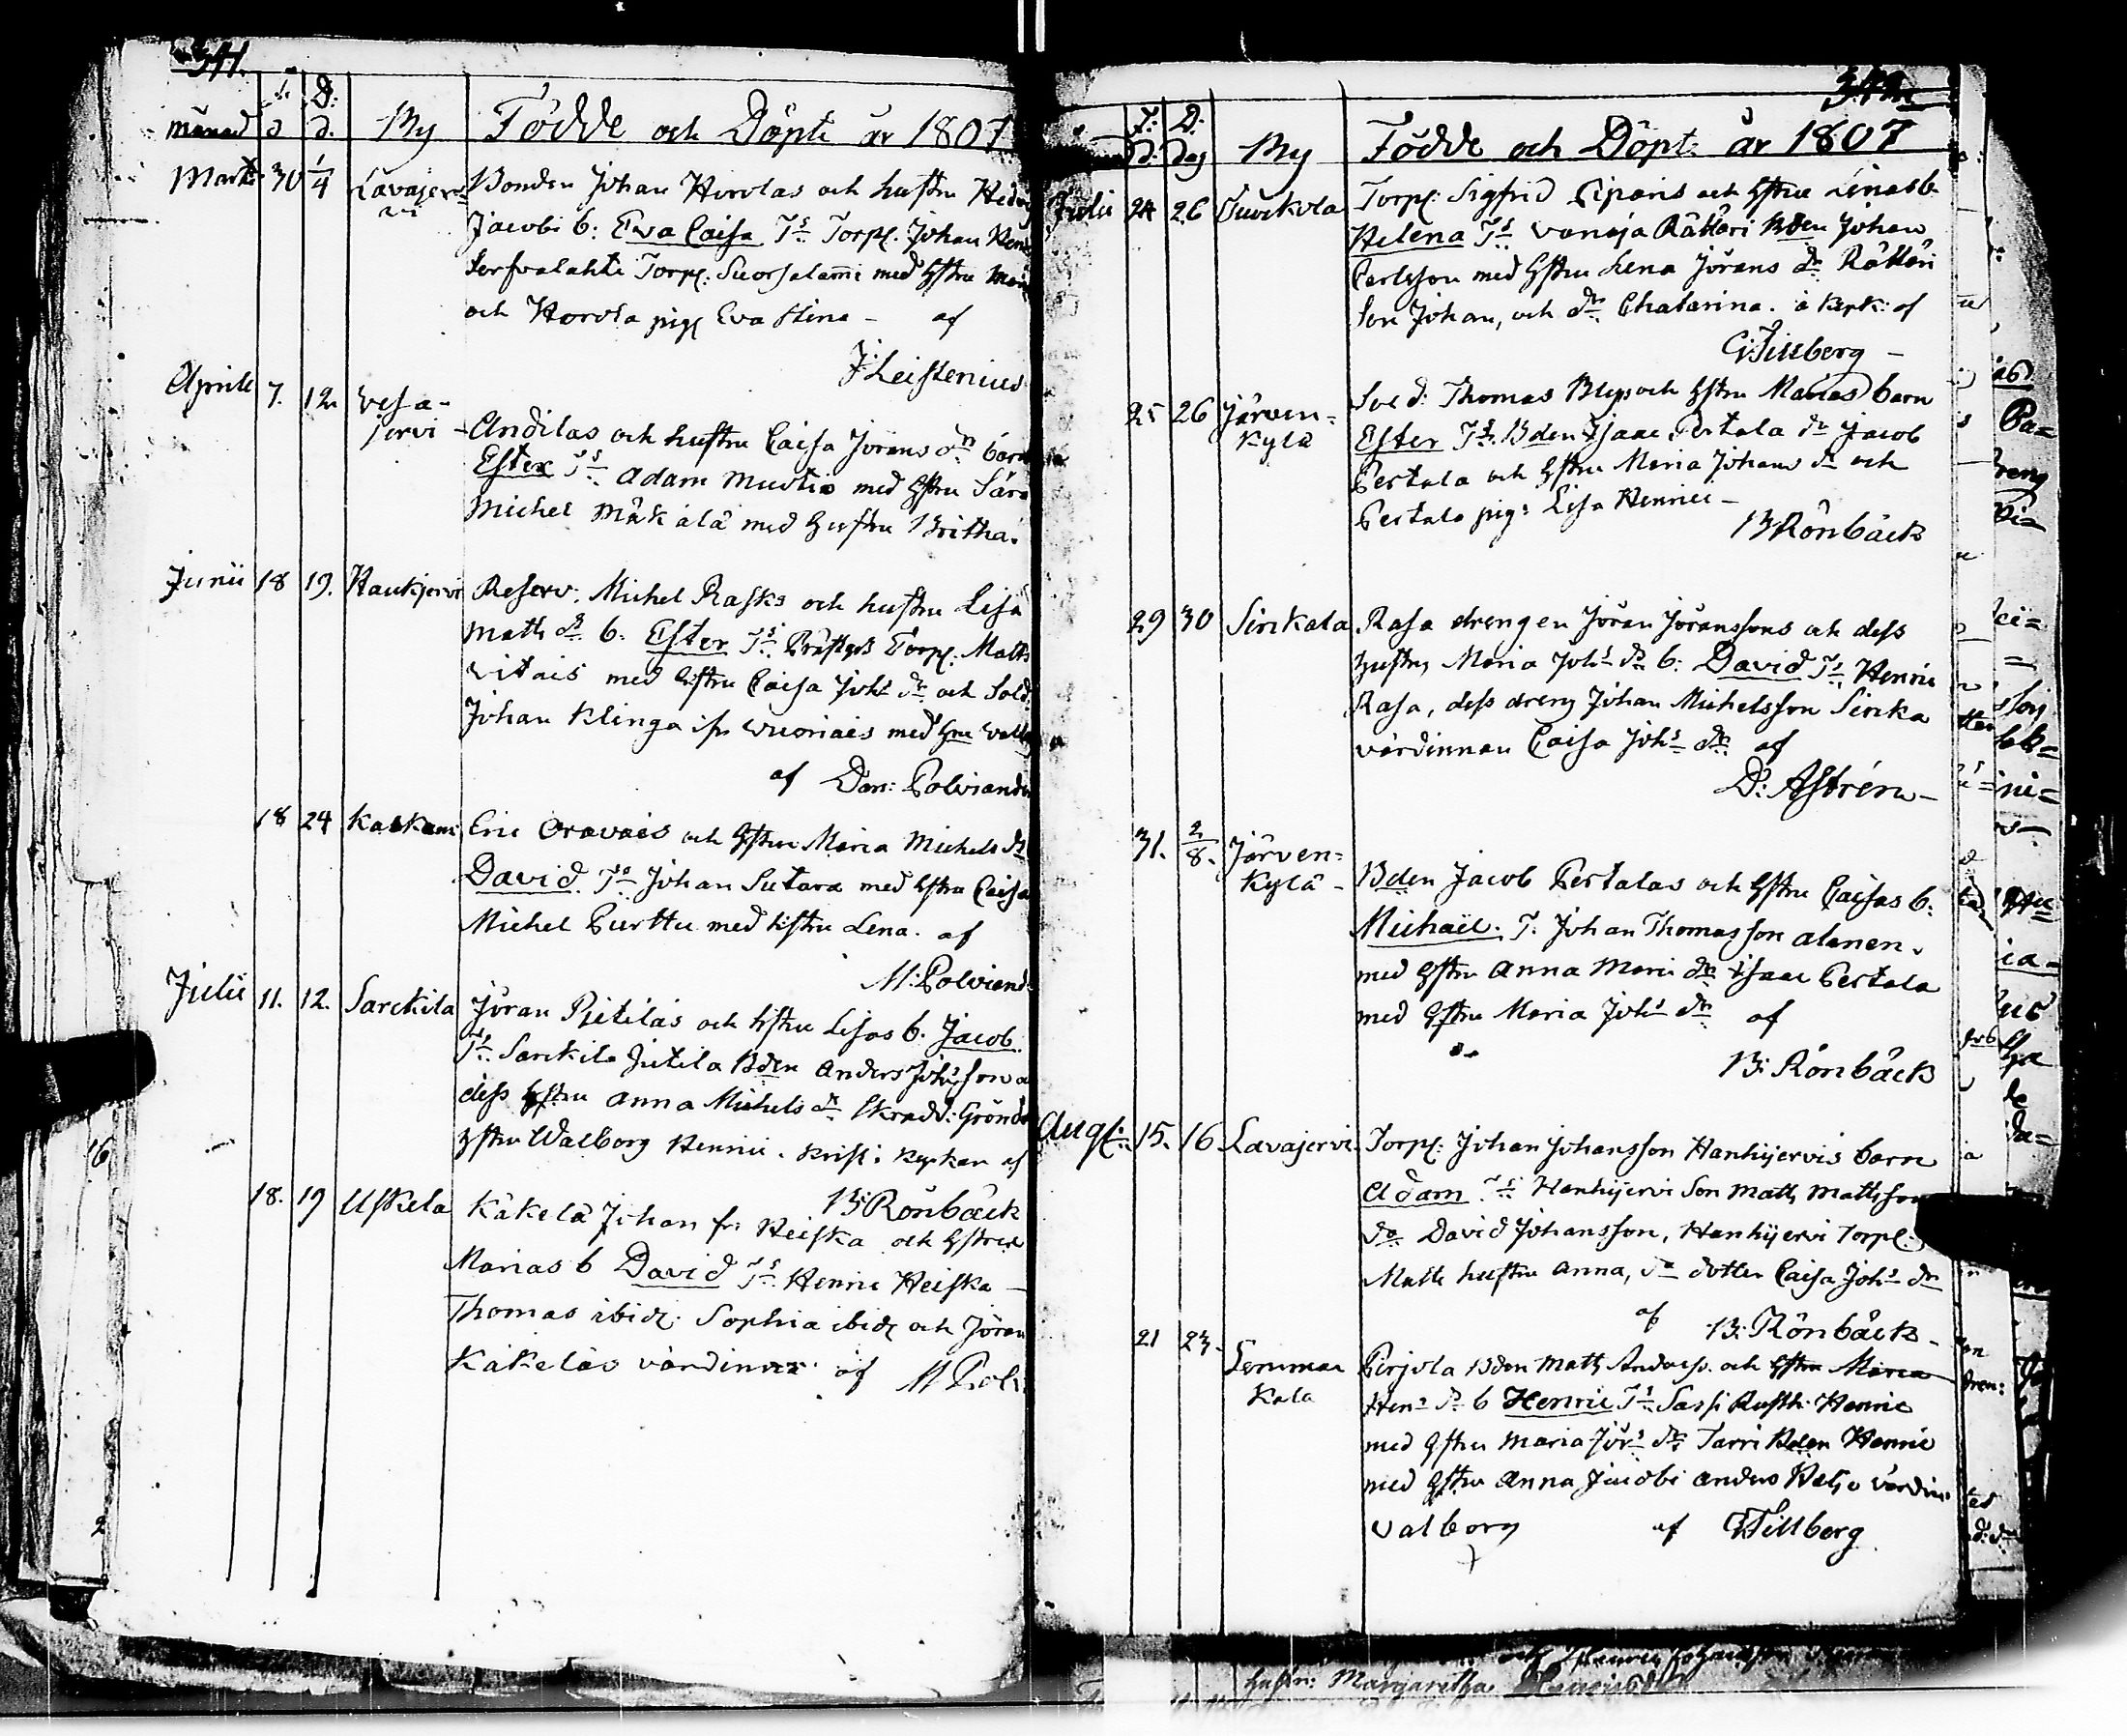 341.
Månad d D: d. By Födde och Döpte år 1807
Marti 30 1/4 Lavajervi Bonden Johan Horolas och hustru Hedvig
Jacobi b: Eva Caisa Ts Torp. Johan
Torp: Suorsalami med Hstru
och Horola pig Eva Stina - af
J: Leistenius
Aprili 7. 12. Vesa-
jervi - Andilas och hustru Caisa Jörans dr barn
Ester Ts Adam Mustio med Hstru Sara
Michel Mäkälä med Hustru Britha.
Junii 18 19. Haukjervi Reserv: Michel Rasks och hustru Lisa
Matts dr b: Ester Ts Torp: Matts
Vitais med Hstru Caisa Johs dr och Sold:
Johan Klinga med Hru
af Dan: Polviander
18 24 Kaskami Eric Oravais och Hstru Maria Michels dr
David. Ts Johan Sutara med Hstru Caisa
Michel Purttu med Hstru Lena. af
M: Polviand:
Julii 11. 12. Sarckila Jöran Pjetiläs och Hstru Lisas b. Jacob.
Ts Sarckila Jutila Bden Anders Johsson
dess Hstru Anna Michels dr Skradd: Grönd
Hstru Walborg Henrici. Krist: Kyrkan af
B: Rönbäck
18. 19 Uskela Käkelä Johan Heiska och Hstrus
Marias b David Ts Henric Heiska -
Thomas ibid: Sophia ibid och Jöran
Käkeläs värdinna af M Pol:
F: d: D: dag By Födde och Döpte år 1807
Julii 24 26 Tuorkola Torp: Sigfrid Piparis och Hstru Linas b
Helena Ts Vanaja Rätteri Bden Johan
Carlsson med Hstru Lena Jörans dr Rätteri
Son Johan, och dr Chatarina. i Kyrk: af
G: Tillberg -
25 26 Järven=
kylä Sold: Thomas Blys och Hstru Marias barn
Ester Ts. Bden Isaac Pertala dr Jacob
Pertala och Hstru Maria Johans dr och
Pertala pig: Lisa Henrici -
B: Rönbäck
29 30 Sirikala Rasa drengen Jöran Jöranssons och dess
hustru Maria Johs dr b: David Ts Henric
Rasa, dess dreng Johan Michelsson Sirika
värdinnan Caisa Johs dr af
D: Astrén -
31. 2/8. Järven=
kylä - Bden Jacob Pertalas och Hstru Caisas b:
Michaël. T: Johan Thomasson alanen.
med Hstru Anna Mari dr Isaac Pertala
med Hstru Maria Johs dr af
B: Rönbäck
Augs: 15. 16 Lavajervi Torp: Johan Johansson Hanhijervis barn
Adam Ts Hanhijervi Son Matts Mattsson
do David Johansson, Hanhijervi Torp:
Matts hustru Anna, do dotter Caisa Johs dr
af B: Rönbäck -
21 23. Lemma
kala Pirjola Bden Matts Anderss. och Hstru Maria
Hens dr b Henric Ts Sassi Rusth: Henric
med Hstru Maria Jörs dr Tarri Bden Henric
med Hstru Anna Jacobi anders värdin
Valborg af G: Tillberg
hustru: Margaretha